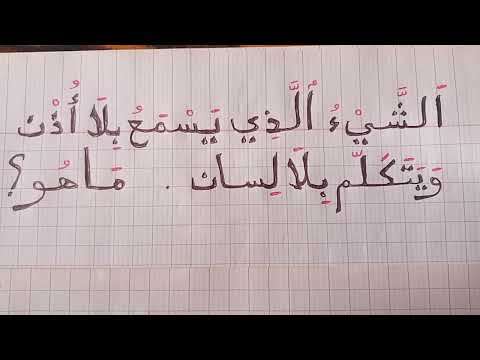 اَلشَّيْءُ اْلَّذِي يَسْمَعُ بِلَا أُذْن
وَيَتَكَلَّم بِلَا لِسان . مَا هُو؟